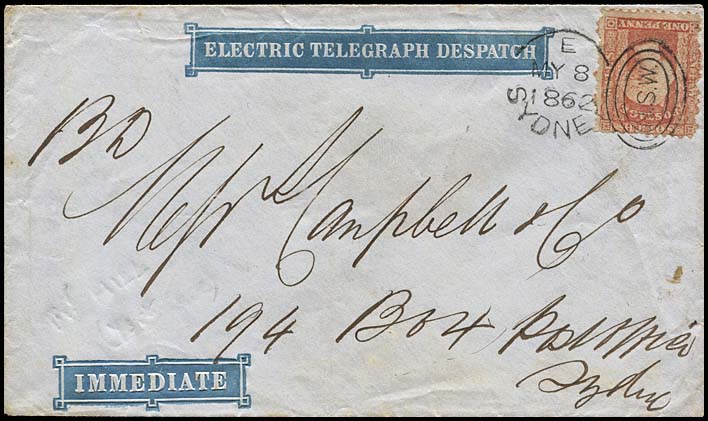 ELECTRIC TELEGRAPH DESPATCH
E
MY 8
1862
SYDNE
S.W.
ONE PENNY
POSTAGE
Messrs Campbell & Co
194 Box Post Office
Sydney
IMMEDIATE